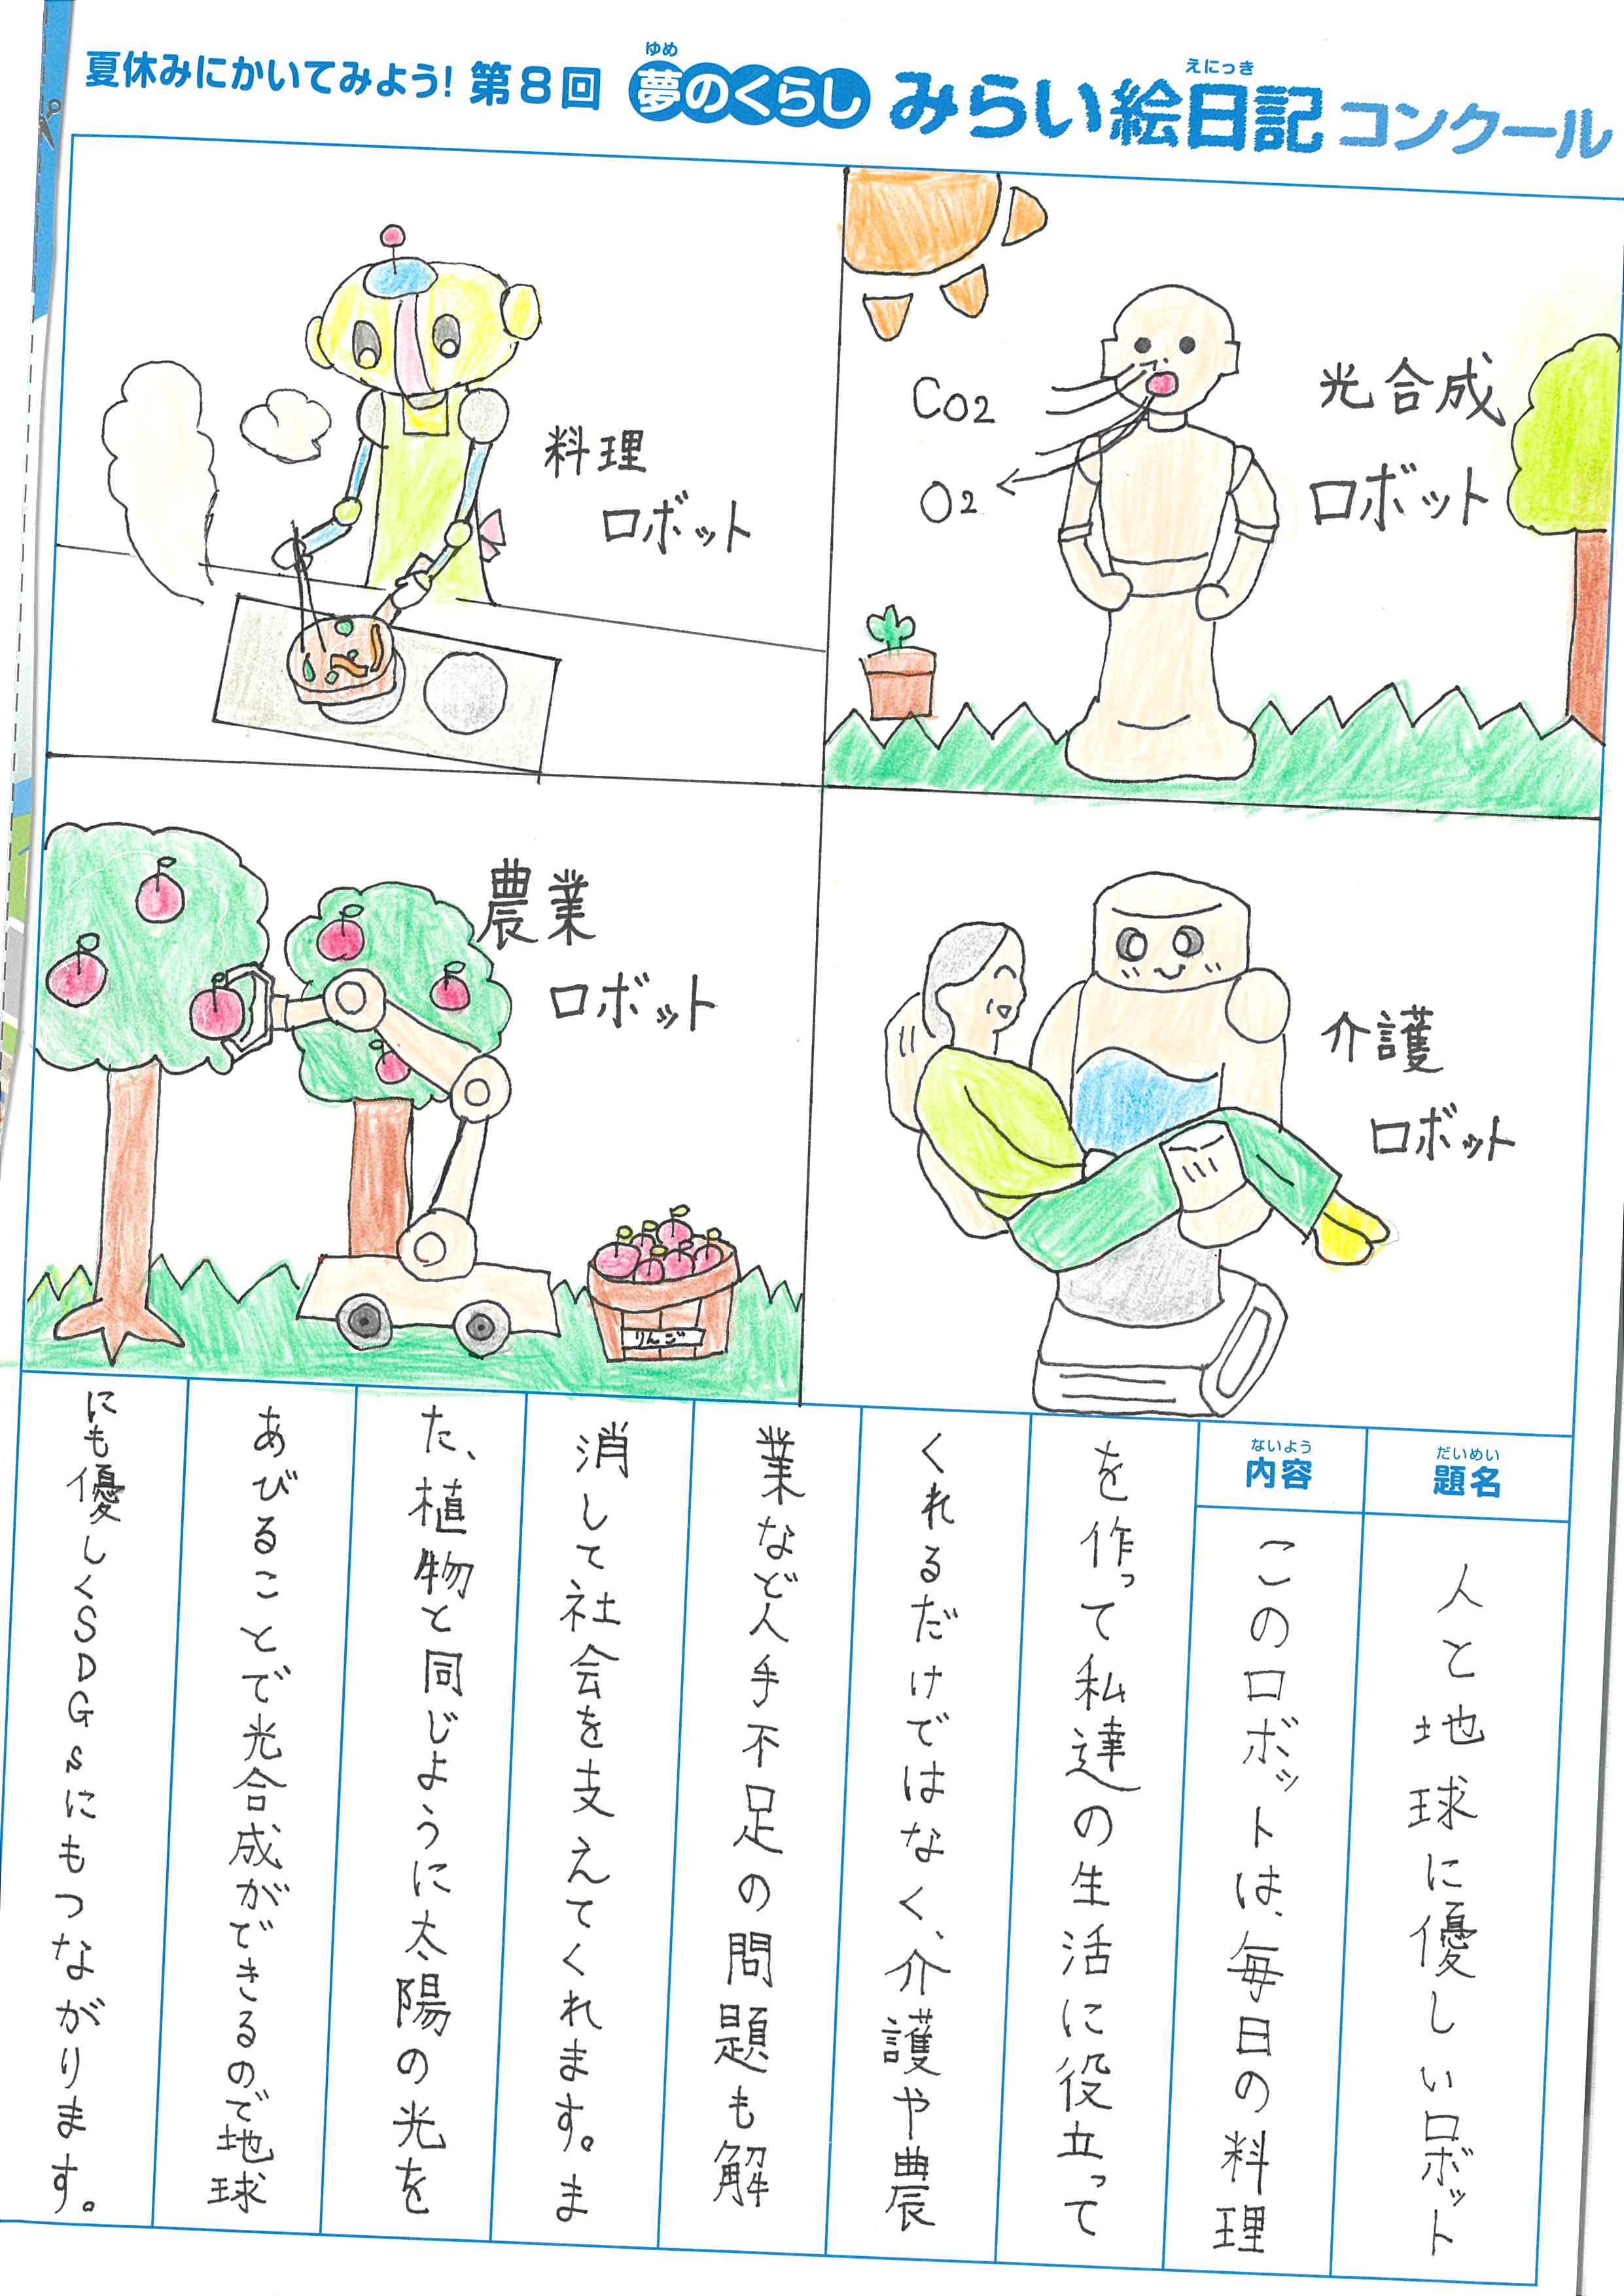 夏休みにかいてみよう! 第8回 夢のくらし みらい絵日記 コンクール
ゆめ
えにっき
料理
ロボット
CO2
O2
光合成
ロボット
農業
ロボット
りんご
介護
ロボット
だいめい
題名
人と地球に優しいロボット
ないよう
内容
このロボットは、毎日の料理
を作って私達の生活に役立って
くれるだけではなく、介護や農
業など人手不足の問題も解
消して社会を支えてくれます。ま
た、植物と同じように太陽の光を
あびることで光合成ができるので地球
にも優しくSDGsにもつながります。